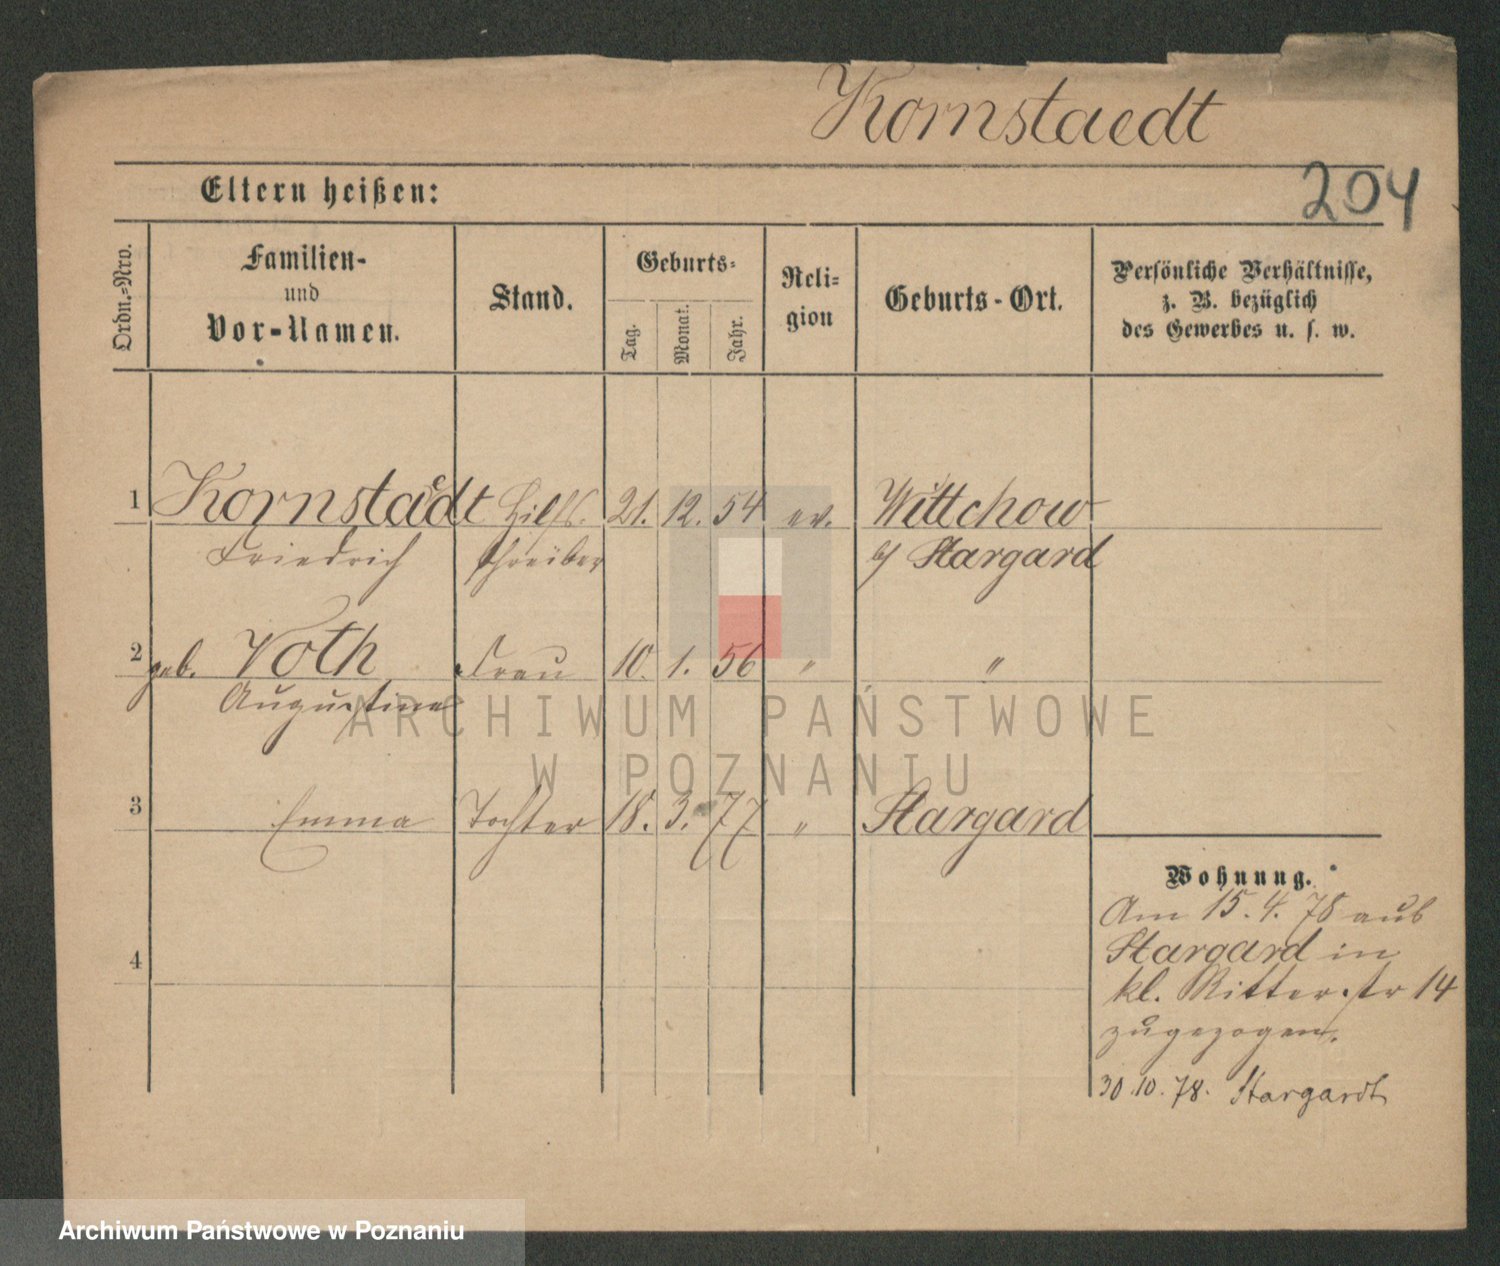 Kornstaedt
204
Eltern heißen:
Ordn.=Nro.
Familien-
und
Vor-Namen.
Stand.
Geburts-
Tag.
Monat.
Jahr.
Reli-
gion
Geburts-Ort.
Persönliche Verhältnisse,
z. B. bezüglich
des Gewerbes u. s. w.
1 Kornstaedt Hilfs. 21. 12. 54 ev. Wittchow
Friedrich schreiber b/ Stargard
2 geb. Voth Frau 10. 1. 56 " "
Augustine
3 Emma Tochter 18. 3. 77 " Stargard
4
Wohnung.
Am 15.4.78 aus
Stargard in
kl. Ritterstr 14
zugezogen.
30.10.78. Stargardt
ARCHIWUM PAŃSTWOWE
W POZNANIU
Archiwum Państwowe w Poznaniu